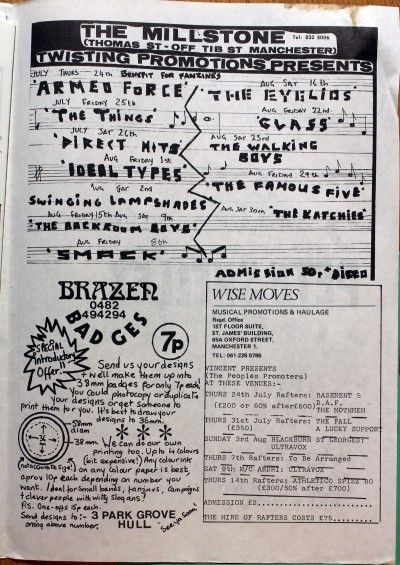 THE MILLSTONE Tel: 832 5006
(THOMAS ST-OFF TIB ST MANCHESTER)
TWISTING PROMOTIONS PRESENTS
JULY THURS 24th BENEFIT FOR FANZINES
"ARMED FORCE"
JULY FRIDAY 25th
"THE THINGS"
JULY SAT 26th
"DIRECT HITS"
AUG FRIDAY 1st
"IDEAL TYPES"
AUG SAT 2nd
SWINGING LAMPSHADES
AUG FRIDAY 15th AUG SAT 9th
"THE BACKROOM BOYS"
AUG FRIDAY 8th
"SMACK"
AUG SAT 16th
"THE EYELIDS"
AUG FRIDAY 22nd
"GLASS"
AUG SAT 23rd
THE WALKING
BOYS
AUG FRIDAY 29th
"THE FAMOUS FIVE"
AUG SAT 30th "THE KATCHIES"
ADMISSION 50p + DISCO
BRAZEN
0482
494294
BADGES
7p
Special
Introductory
Offer!!
Send us your designs
& we'll make them up into
38mm badges for only 7p each
You could photocopy or duplicate
your designs or get someone to
print them for you. It's best to draw your
designs to 36mm.
58mm
diam
38mm
(not accurate size!)
We can do our own
printing too. Up to 4 colours
(bit expensive!) Any colour ink
on any colour paper is best,
aprox 10p each depending on number you
want. Ideal for small bands, fanzines, campaigns
& clever people with witty slogans!
P.S. One-offs 15p each.
Send designs to:- 3 PARK GROVE
or ring above number. HULL
See ya Soon!
WISE MOVES
MUSICAL PROMOTIONS & HAULAGE
Regd. Office
1ST FLOOR SUITE,
ST. JAMES' BUILDING,
65A OXFORD STREET,
MANCHESTER 1.
TEL: 061 228 0786
VINCENT PRESENTS
(The Peoples Promoters)
AT THESE VENUES:-
THURS 24th July Rafters: BASEMENT 5
(£200 or 60% after £600) D.A.F.
THE NOTHMEN
THURS 31st July Rafters: THE FALL
(£350) A LUCKY SUPPORT
SUNDAY 3rd Aug BLACKBURN ST GEORGES:
ULTRAVOX
THURS 7th Rafters: To Be Arranged
SAT 9th M/C ARDRI: ULTRAVOX
THURS 14th Rafters: ATHLETICO SPIZZ 80
(£300/50% after £700)
ADMISSION £2
THE HIRE OF RAFTERS COSTS £75